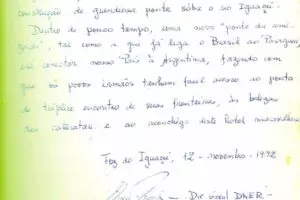 construção de grandiosa ponte sôbre o rio Iguaçú.
Dentro de pouco tempo, uma nova "ponte da ami-
zade" tal como a que já liga o Brasil ao Paraguai,
irá conectar nosso País à Argentina, fazendo com
que os povos irmãos tenham fácil acesso ao ponto
de tríplice encontro de suas fronteiras, às belezas
das cataratas e ao aconchego deste Hotel maravilhoso
Foz do Iguaçú, 12 - novembro - 1972
— Dir. Geral DNER -